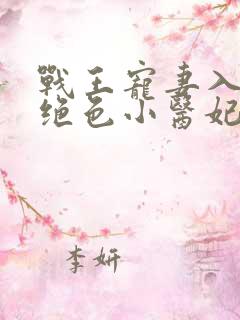 戰王寵妻入
绝色小醫妃
李妍